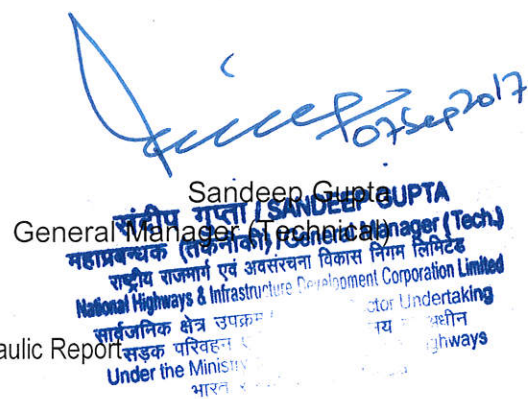 07Sep2017
Sandeep Gupta
General Manager (Technical)
संदीप गुप्ता / SANDEEP GUPTA
महाप्रबन्धक (तकनीकी) / General Manager (Tech.)
राष्ट्रीय राजमार्ग एवं अवसंरचना विकास निगम लिमिटेड
National Highways & Infrastructure Development Corporation Limited
सार्वजनिक क्षेत्र उपक्रम ctor Undertaking
aulic Report
सड़क परिवहन अधीन
Under the Ministry ghways
भारत